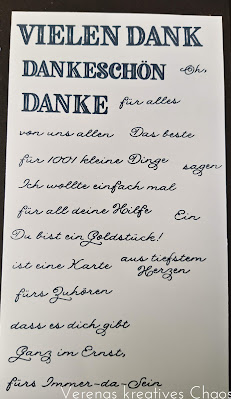 VIELEN DANK
DANKESCHÖN
Oh,
DANKE
für alles
von uns allen
Das beste
für 1001 kleine Dinge
sagen
Ich wollte einfach mal
für all deine Hilfe
Ein
Du bist ein Goldstück!
aus tiefstem
Herzen
ist eine Karte
fürs Zuhören
dass es dich gibt
Ganz im Ernst,
fürs Immer-da-Sein
Verenas kreatives Chaos